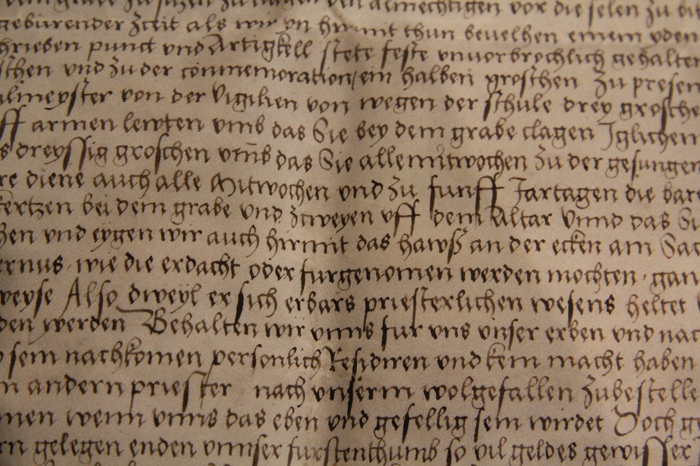 almechtigen vor die selen zu
geburender Zceit als wir yn hirmit thun bevelhen einem yden
schrieben punct und Artigkell stete feste unvorbrochlich gehalten
schen und zu der commemoration ein halben groschen zu presen
almeyster von der Vigilien von wegen der schule drey grosche
uff armen lewten umb das Sie bey dem grabe clagen Iglichen
s dreyssig groschen umb das Sie alle mitwochen zu der gesungen
re diene auch alle Mitwochen und zu funff Jartagen die bare
kertzen bei dem grabe und zcweyen uff dem Altar Unnd das Si
hen und eygen wir auch hirmit das hawß an der ecken am Sac
ernus wie die erdacht oder furgenomen werden mochten gan
weyse Also dweyl er sich erbars priesterlichen wesens heltet
den werden Behalten wir unns fur uns unser erben und nac
o sein nachkomen personlich Residiren und kein macht haben
n andern priester nach unserm wolgefallen zubestelle
men wenn unns das eben und gefellig sein wirdet Doch ge
rn gelegen enden unnser furstenthumb so vil geldes gewisser